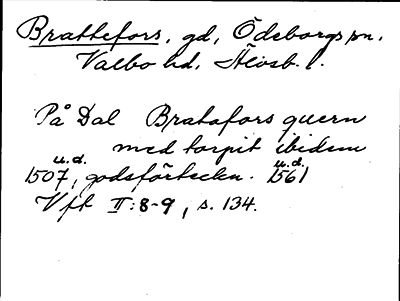 Brattefors, gd, Ödeborgs sn,
Valbo hd, Älvsb. l.
På Dal Bratafors quern
med torpit ibidem
u.d. u.d.
1507, godsförteckn. 1561
Vft II:8-9, s. 134.